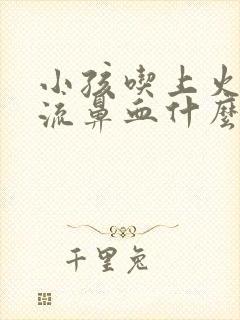 小孩喫上火
流鼻血什麼
千里兔